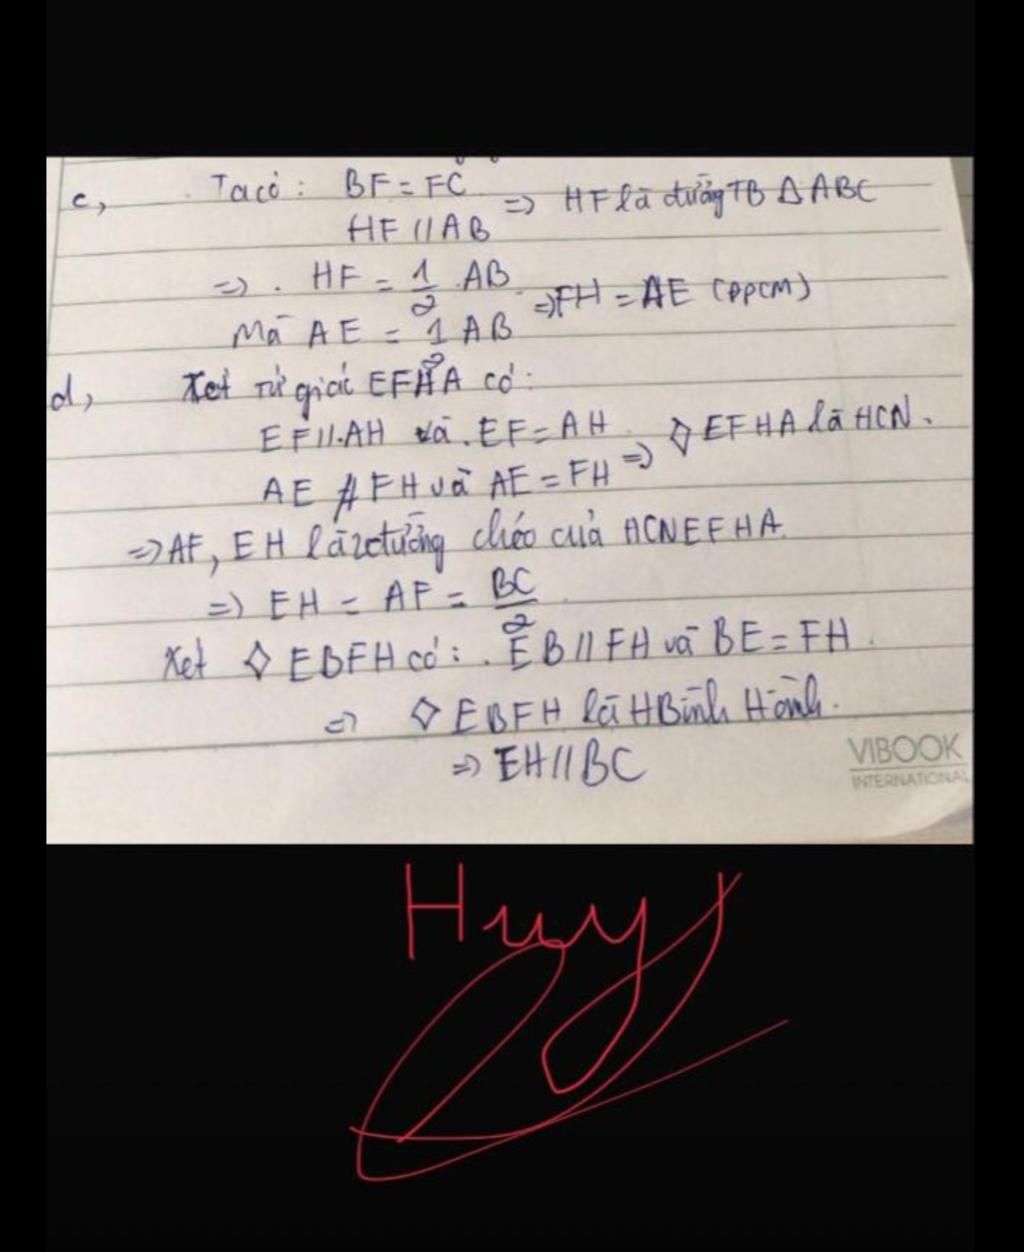 c, Ta có: BF = FC
HF // AB => HF là đường TB Δ ABC
=> . HF = 1/2 . AB
Mà AE = 1/2 AB => FH = AE (ĐPCM)
d, Xét Tứ giác EFHA có:
EF // AH và . EF = AH
AE // FH và AE = FH => ◇ EFHA là HCN.
=> AF, EH là 2 đường chéo của HCN EFHA.
=> EH = AF = BC/2
Xét ◇ EBFH có: . EB // FH và BE = FH .
=> ◇ EBFH là HBình Hành.
=> EH // BC
VIBOOK
INTERNATIONAL
Huy